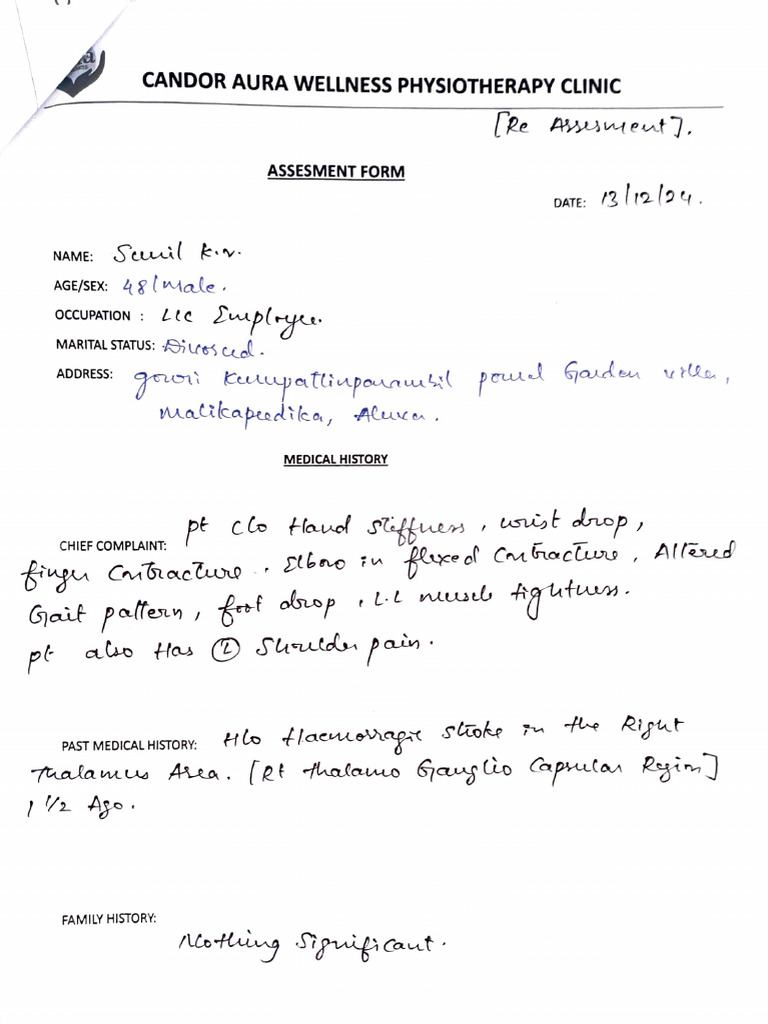 CANDOR AURA WELLNESS PHYSIOTHERAPY CLINIC
[Re Assesment].
ASSESMENT FORM
DATE: 13/12/24.
NAME: Sunil K.V.
AGE/SEX: 48/Male.
OCCUPATION : LIC Employee.
MARITAL STATUS: Divosced.
ADDRESS: Garden villa,
Malikapeedika, Aluva.
MEDICAL HISTORY
pt c/o Hand stiffness, wrist drop,
CHIEF COMPLAINT:
finger contracture. Elbow in flexed contracture, Altered
Gait pattern, foot drop, L.L muscle tightness.
pt also Has Ⓛ Shoulder pain.
PAST MEDICAL HISTORY: H/o Haemorragic stroke in the Right
Thalamus Area. [Rt Thalamo Ganglio Capsular Region]
1 1/2 Ago.
FAMILY HISTORY:
Nothing Significant.